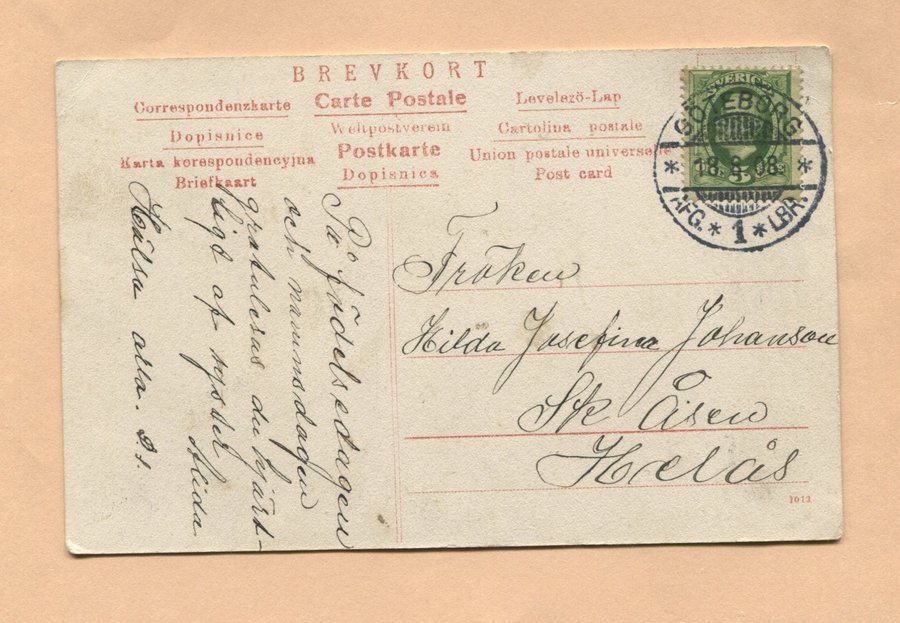 BREVKORT
Correspondenzkarte
Carte Postale
Levelező-Lap
Dopisnice
Weltpostverein
Cartolina postale
Karta korespondencyjna
Postkarte
Union postale universelle
Briefkaart
Dopisnica
Post card
SVERIGE
GÖTEBORG
* 18.8.08 *
AFG. * 1 * LBR.
På födelsedagen
och namnsdagen
gratuleras du hjärt-
ligt af syster Alida
Hälsa alla.
Fröken
Hilda Josefina Johanson
Sk Åsen
1012